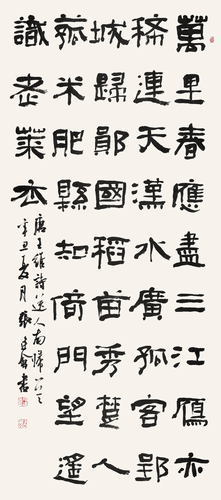 萬里春應盡三江鴈亦
稀連天漢水廣孤客郢
城歸鄖國稻苗秀楚人
菰米肥縣知倚門望遙
識老萊衣
唐王維詩送人南歸
辛丑夏月張建會書